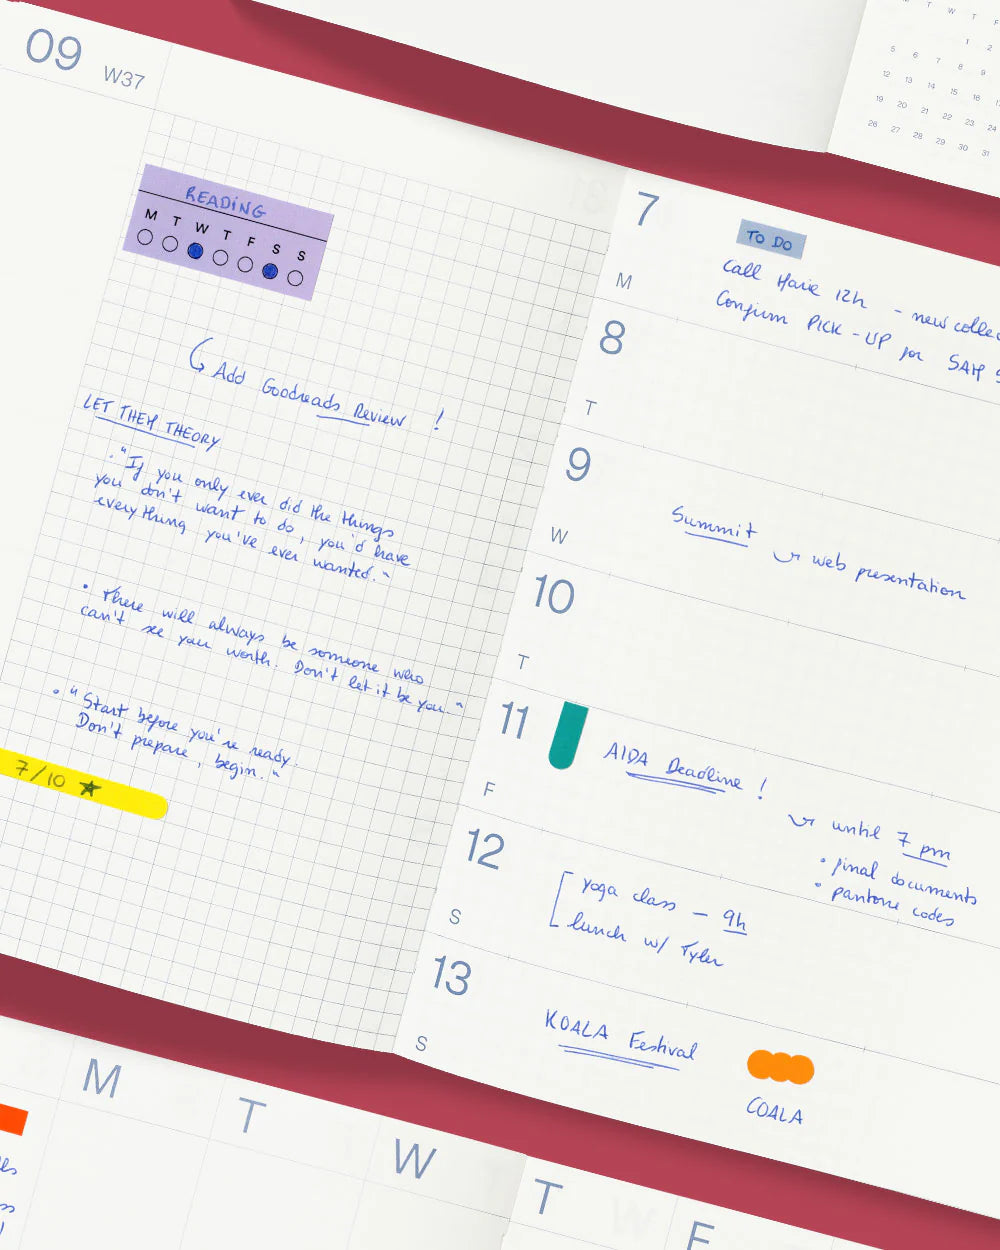 09 W37
READING
M T W T F S S
Add Goodreads Review !
LET THEM THEORY
• "If you only ever did the things
you don't want to do, you'd have
everything you've ever wanted."
• There will always be someone who
can't see your worth. Don't let it be you."
• "Start before you're ready.
Don't prepare, begin."
7/10 ★
7
M
TO DO
Call 12h - new
Confirm PICK-UP for
8
T
9
W
Summit
web presentation
10
T
11
F
AIDA Deadline !
until 7 pm
• final documents
• pantone codes
12
S
yoga class - 9h
lunch w/ Tyler
13
S
KOALA Festival
COALA
T W T F
1 2
5 6 7 8 9
12 13 14 15 16
19 20 21 22 23 24
26 27 28 29 30 31
M T W T F